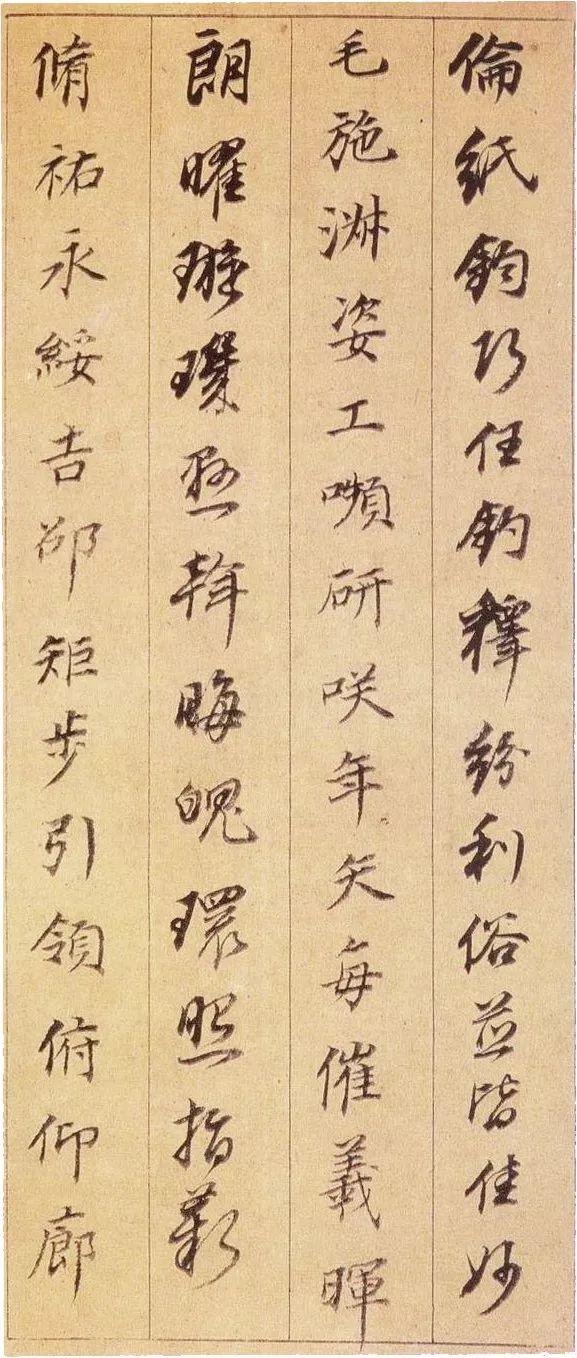 倫紙鈞巧任釣釋紛利俗並皆佳妙
毛施淑姿工嚬研咲年矢每催義暉
朗曜璇璣懸斡晦魄環照指薪
脩祐永綏吉邵矩步引領俯仰廊